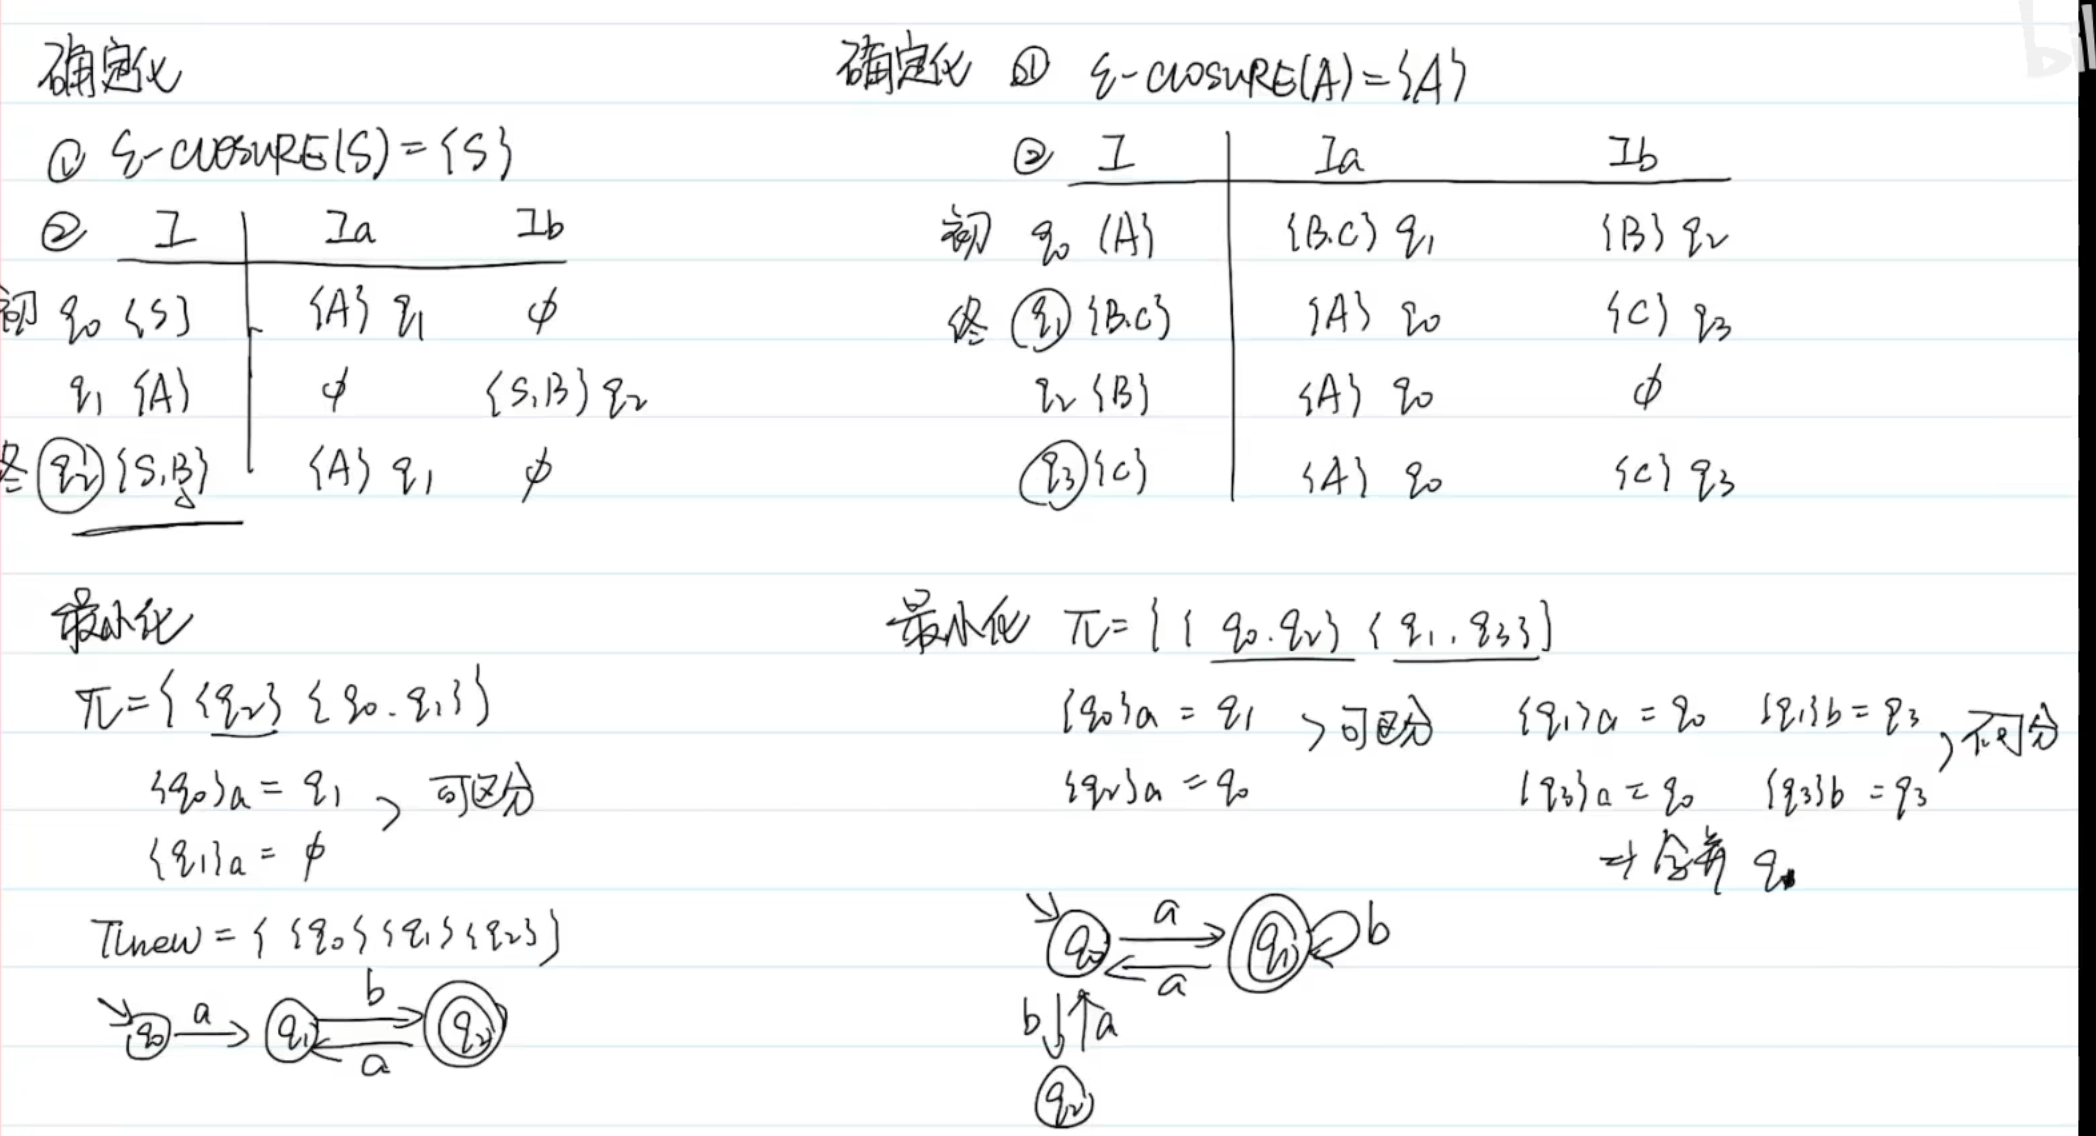 确定化
① ε-CLOSURE(S)={S}
② I Ia Ib
初 q0 {S} {A} q1 φ
q1 {A} φ {S,B} q2
终 q2 {S,B} {A} q1 φ
最小化
π={{q2} {q0.q1}}
{q0}a = q1 > 可区分
{q1}a = φ
πnew = {{q0}{q1}{q2}}
q0 a q1 b a q2
确定化 ① ε-CLOSURE(A)={A}
② I Ia Ib
初 q0 {A} {B.C} q1 {B} q2
终 q1 {B.C} {A} q0 {C} q3
q2 {B} {A} q0 φ
q3 {C} {A} q0 {C} q3
最小化 π={{q0.q2} {q1.q3}}
{q0}a = q1 > 可区分 {q1}a = q0 {q1}b = q3 > 不可分
{q2}a = q0 {q3}a = q0 {q3}b = q3
⇒ 合并 q1
q0 a a q1 b
b a
q2
bil